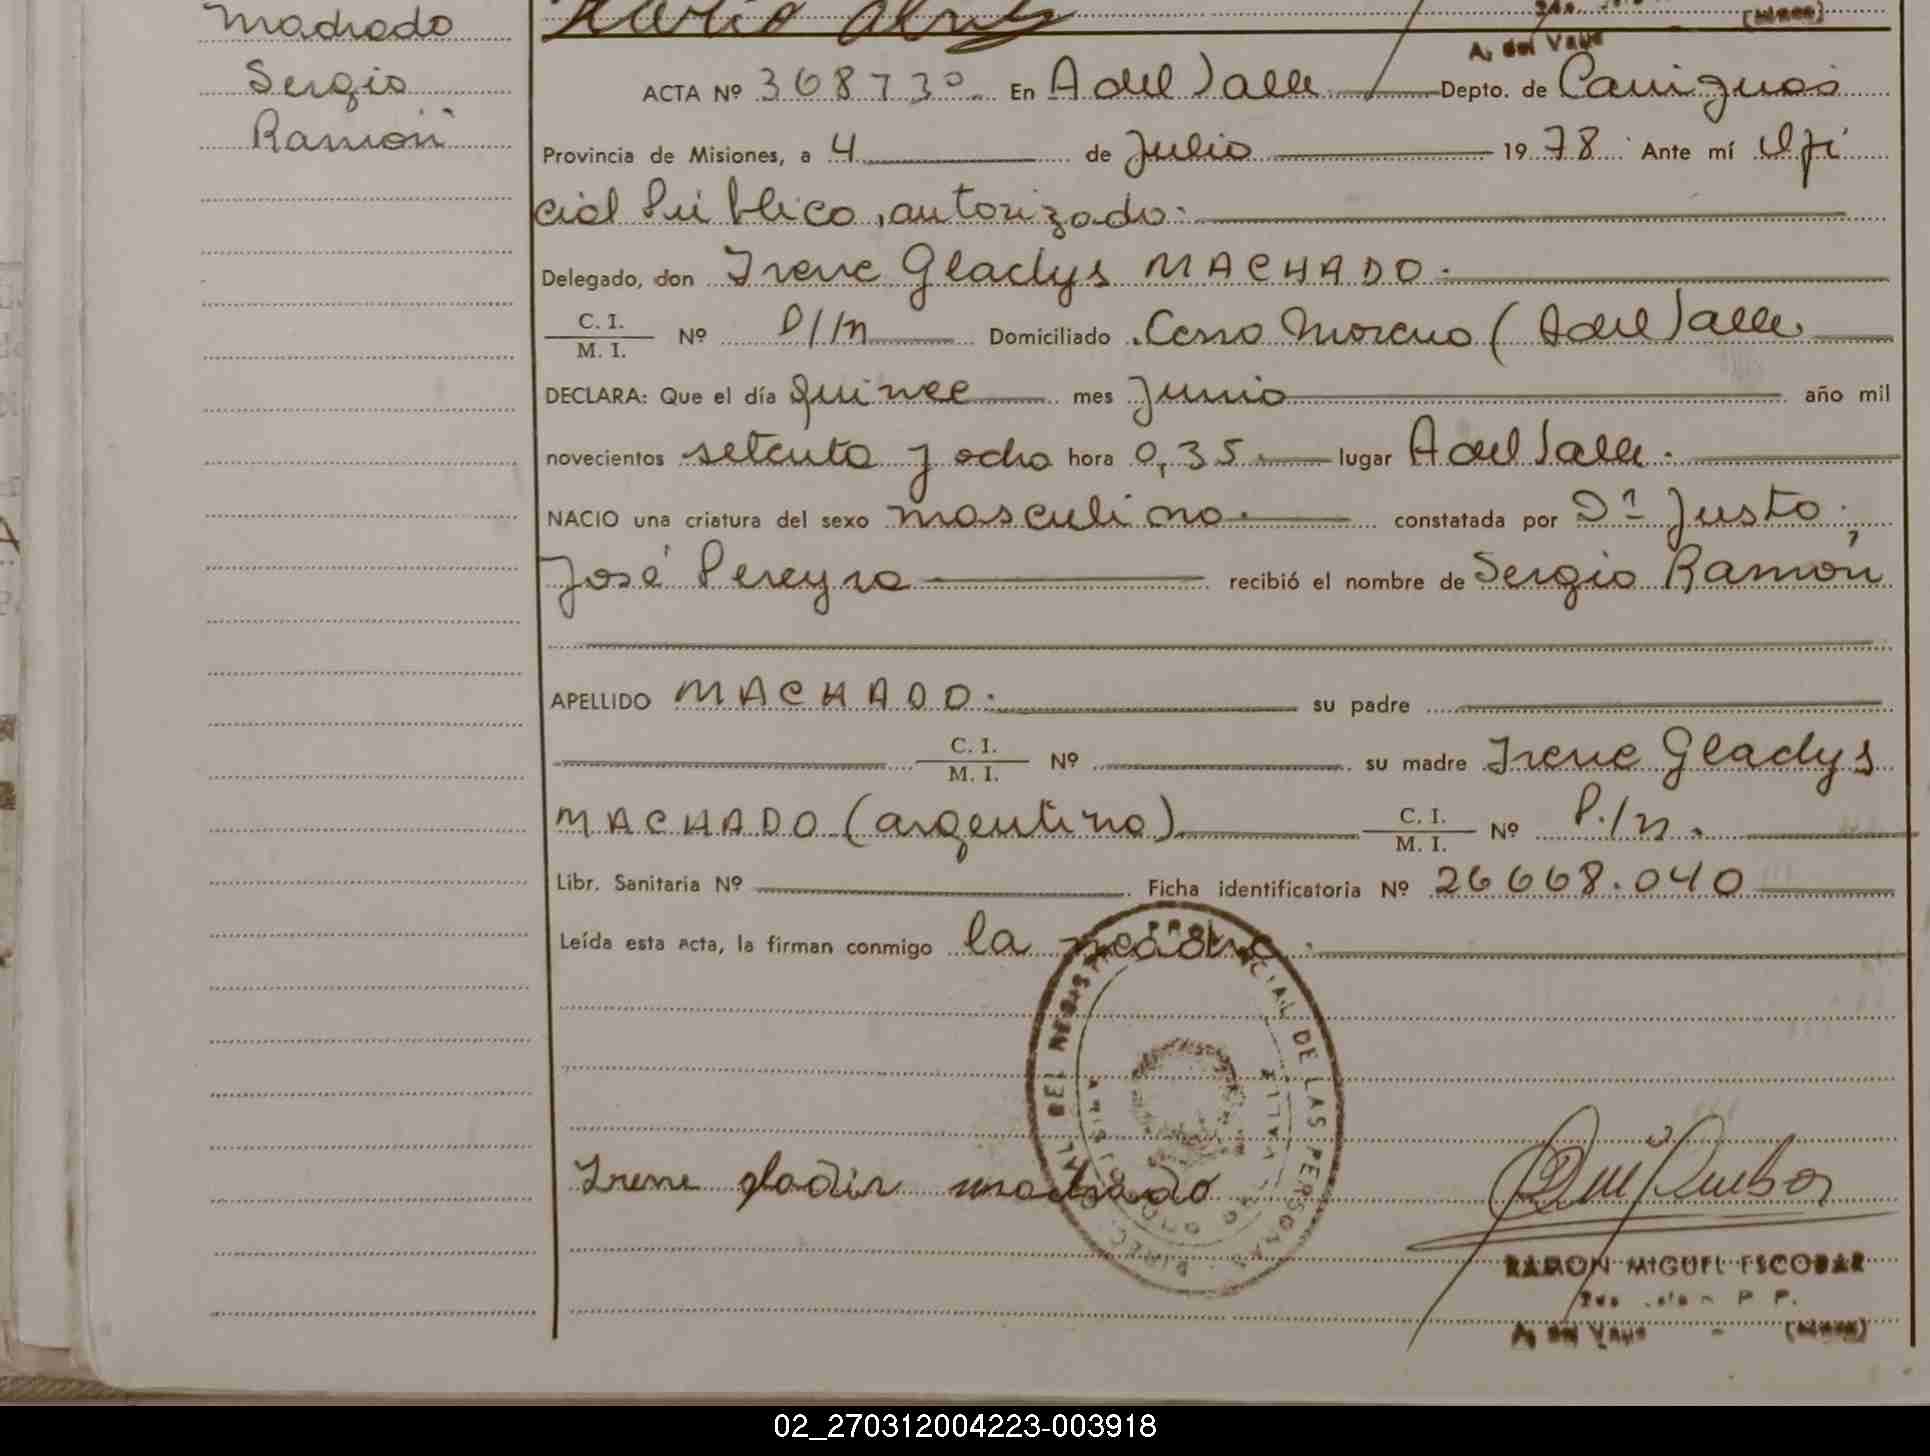 Machado
Sergio
Ramón
A. del Valle
ACTA Nº 368730. En A del Valle Depto. de Cainguás
Provincia de Misiones, a 4 de Julio 1978. Ante mí Ofi
cial Público, autorizado.
Delegado, don Irene Gladys MACHADO.
C. I.
M. I. Nº P/m Domiciliado Cerro Moreno (A del Valle
DECLARA: Que el día quince mes Junio año mil
novecientos setenta y ocho hora 0,35 lugar A del Valle.
NACIO una criatura del sexo masculino. constatada por Dr Justo
José Pereyra recibió el nombre de Sergio Ramón
APELLIDO MACHADO. su padre
C. I.
M. I. Nº su madre Irene Gladys
MACHADO (argentina) C. I.
M. I. Nº P./n.
Libr. Sanitaria Nº Ficha identificatoria Nº 26668.040
Leída esta acta, la firman conmigo la madre.
DEL REGISTRO PROVINCIAL DE LAS PERSONAS
Irene gladis machado
RAMON MIGUEL ESCOBAR
A. del Valle (Mnes)
02_270312004223-003918